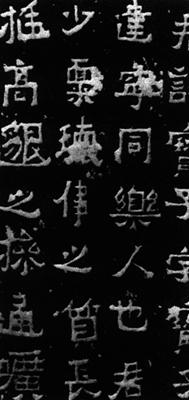 君諱寶子字寶子
建寧同樂人也君
少稟瓌偉之質長
挺高邈之操通曠